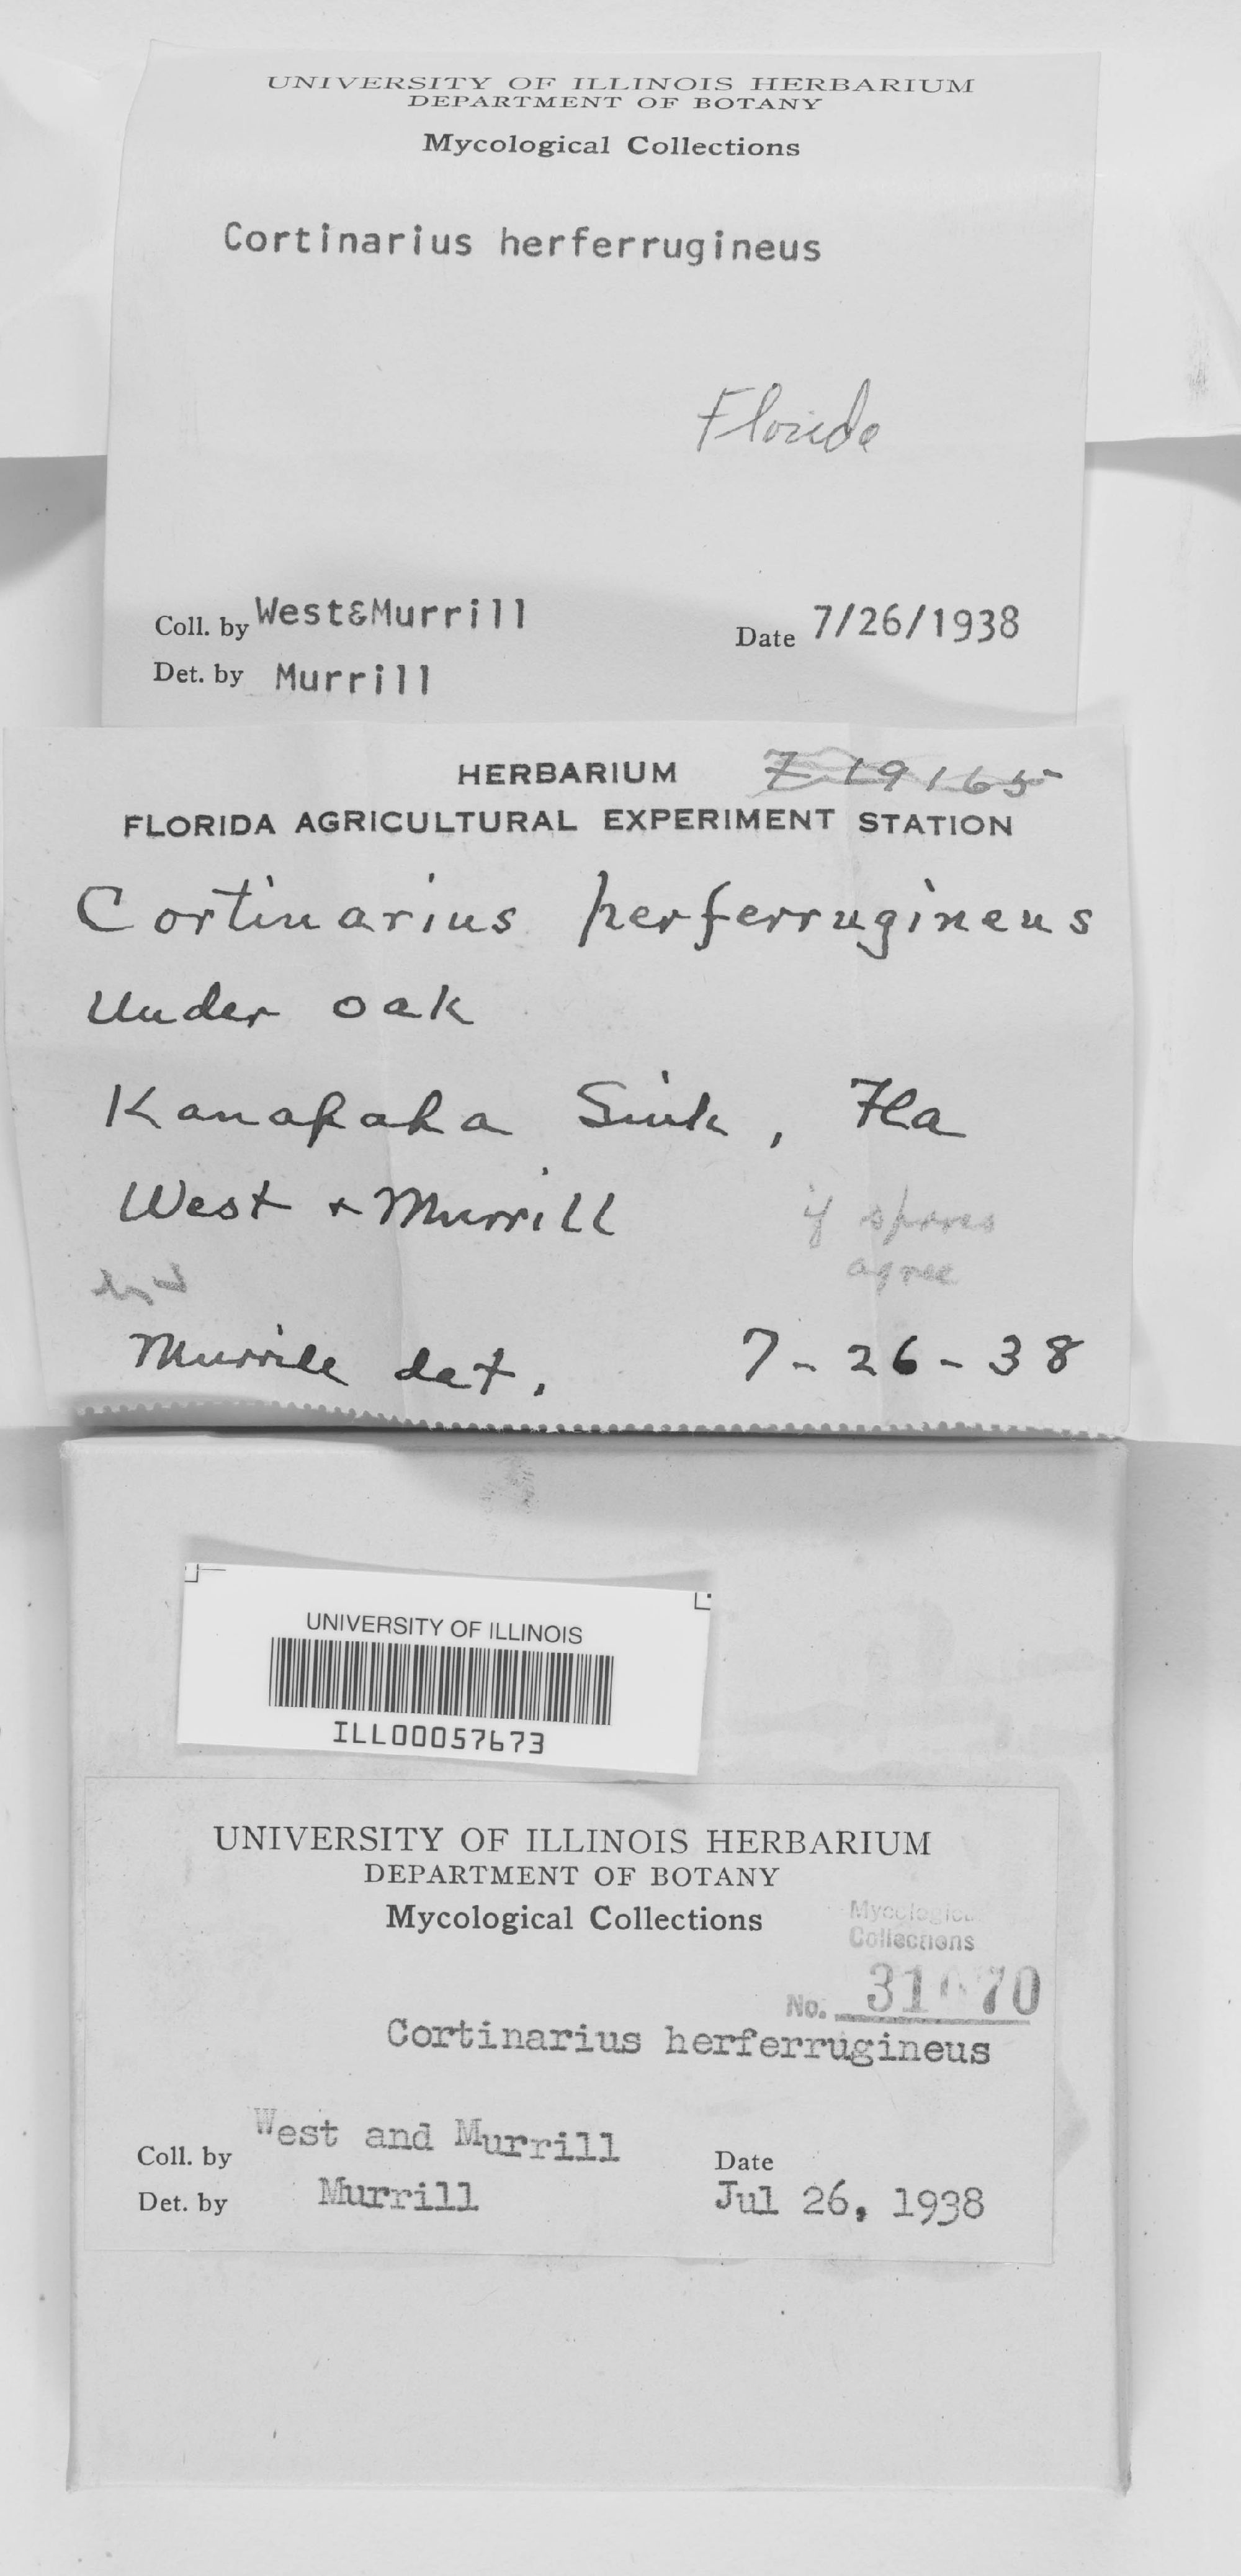 UNIVERSITY OF ILLINOIS HERBARIUM
DEPARTMENT OF BOTANY
Mycological Collections
Cortinarius herferrugineus
Florida
Coll. by West&Murrill
Date 7/26/1938
Det. by Murrill
HERBARIUM 19165
FLORIDA AGRICULTURAL EXPERIMENT STATION
Cortinarius perferrugineus
Under oak
Kanapaha Sink, Fla
West + Murrill
if spores
agree
Murrill det. 7-26-38
UNIVERSITY OF ILLINOIS
ILL00057673
UNIVERSITY OF ILLINOIS HERBARIUM
DEPARTMENT OF BOTANY
Mycological Collections
Mycological
Collections
No.
Cortinarius herferrugineus
Coll. by West and Murrill
Date
Det. by Murrill
Jul 26, 1938